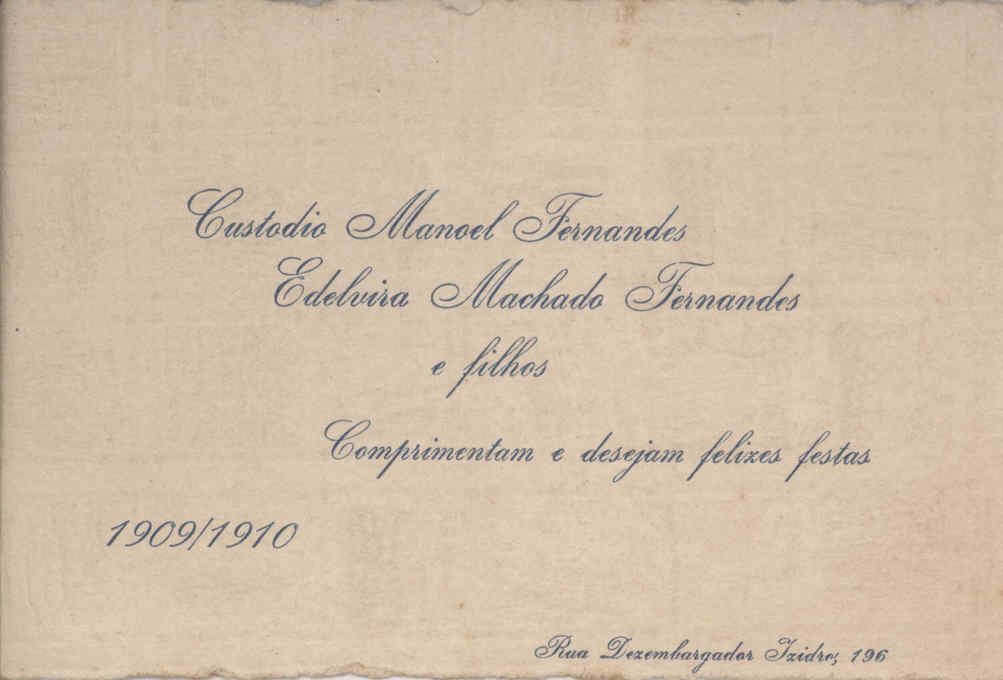 Custodio Manoel Fernandes
Edelvira Machado Fernandes
e filhos
Comprimentam e desejam felizes festas
1909/1910
Rua Dezembargador Izidro, 196